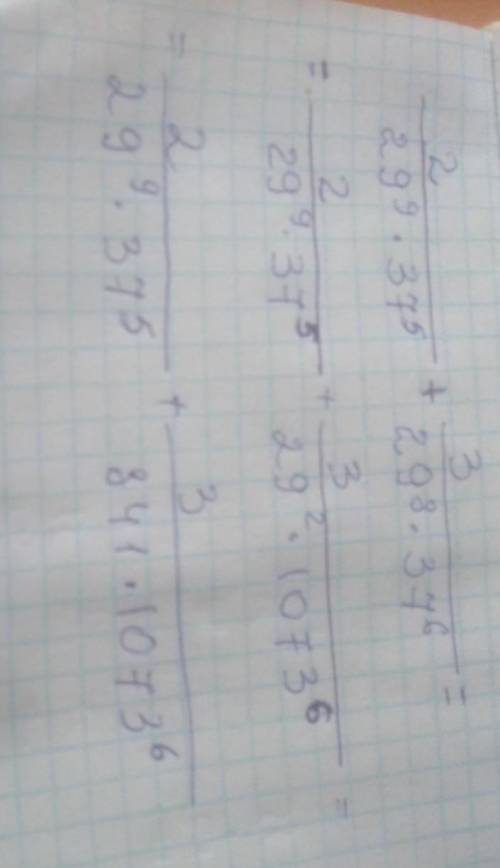 2/(29⁹ · 37⁵) + 3/(29⁸ · 37⁶) =
= 2/(29⁹ · 37⁵) + 3/(29² · 1073⁶) =
= 2/(29⁹ · 37⁵) + 3/(841 · 1073⁶)